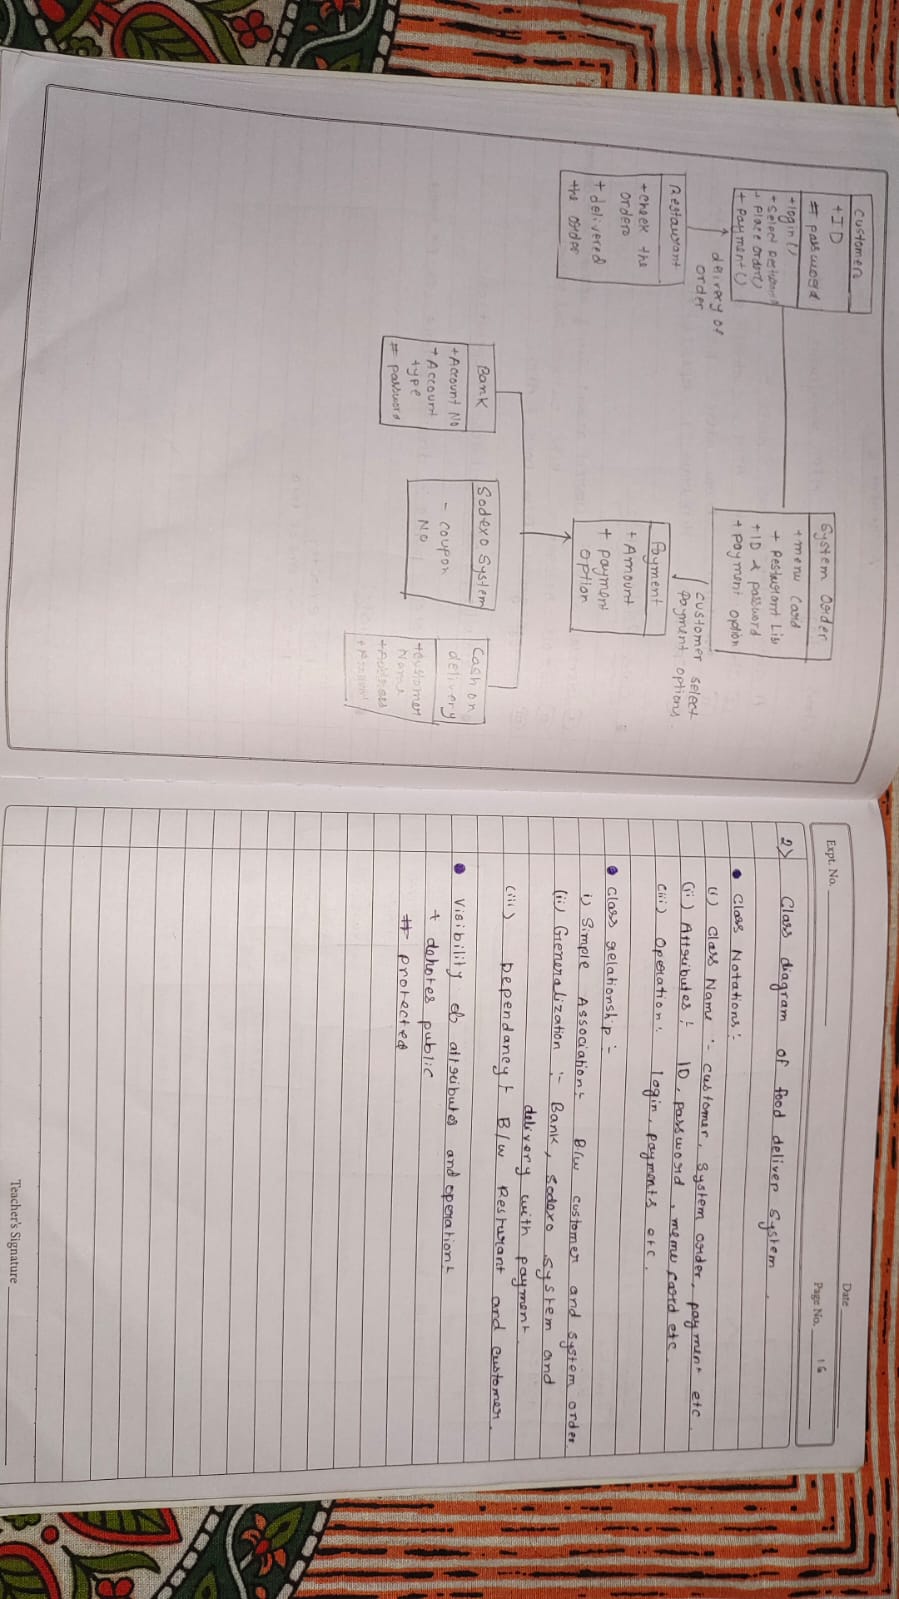 Customer
+ID
# password
+login()
+select Resturant
+ place order()
+ payment()
System Order
+menu Card
+ Resturant Lis
+ID & password
+ payment option
delivery of
order
Restaurant
+check the
orders
+delivered
the order
customer select
payment options.
Payment
+Amount
+ payment
option
Bank
+Account No
+Account
type
# password
Sodexo System
- coupon
No
Cash on
delivery
+customer
Name
+Address
Expt. No.
Date
Page No. 16
2) Class diagram of food deliver System.
• Class Notations:-
(i) Class Name :- customer, System order, payment etc.
(ii) Attributes:- ID, password, menu card etc.
(iii) Operation:- login, payments etc.
• Class relationship:-
i) Simple Association:- B/w customer and system order
(ii) Generalization :- Bank, Sodexo System and
delivery with payment.
(iii) Dependancy:- B/w Resturant and customer.
• Visibility of attributes and operation:-
+ dehotes public
# protected
Teacher's Signature